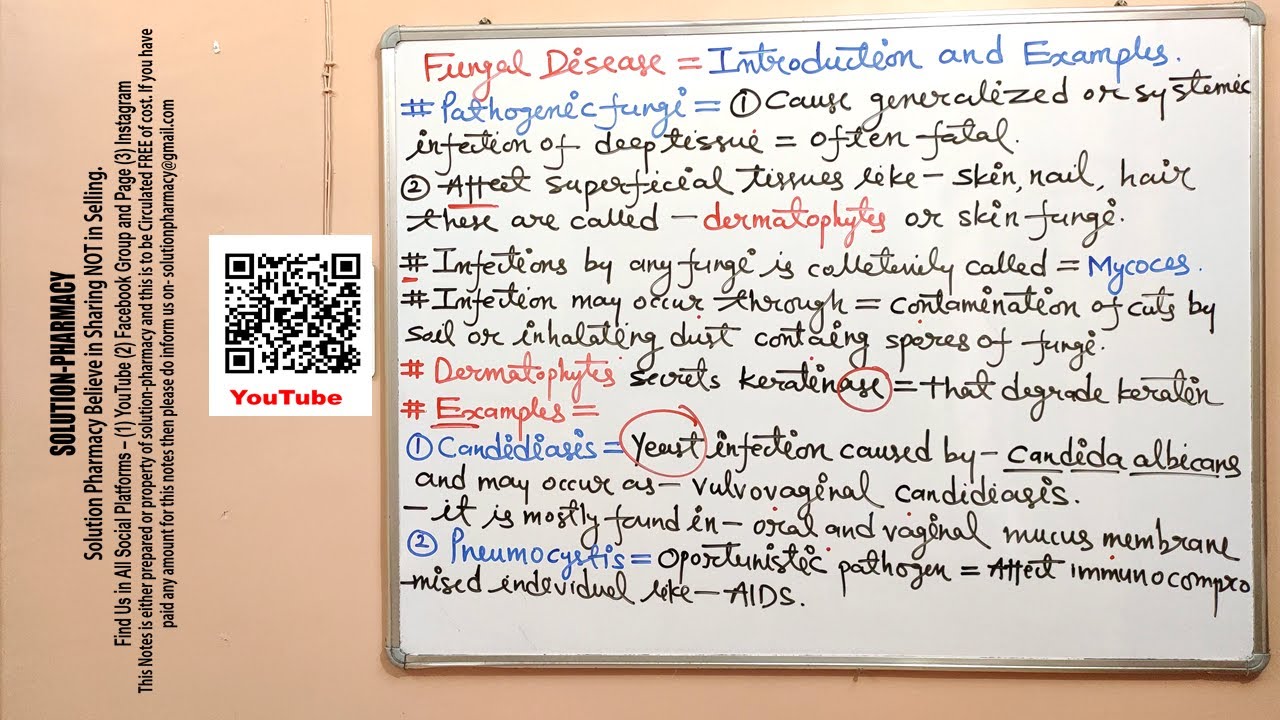 SOLUTION-PHARMACY
Solution Pharmacy Believe in Sharing NOT in Selling.
Find Us in All Social Platforms – (1) YouTube (2) Facebook Group and Page (3) Instagram
This Notes is either prepared or property of solution-pharmacy and this is to be Circulated FREE of cost. If you have
paid any amount for this notes then please do inform us on- solutionpharmacy@gmail.com
YouTube
Fungal Disease = Introduction and Examples.
# Pathogenic fungi = ① Cause generalized or systemic
infection of deep tissue = often fatal.
② Affect superficial tissues like - skin, nail, hair
these are called - dermatophytes or skin fungi.
# Infections by any fungi is colletevily called = Mycoces.
# Infection may occur through = contamination of cuts by
soil or inhalating dust containg spores of fungi.
# Dermatophytes secrets keratinase = that degrade keratin
# Examples =
① Candidiasis = Yeast infection caused by - Candida albicans
and may occur as - vulvovaginal candidiasis.
- it is mostly found in - oral and vaginal mucus membrane
② Pneumocystis = Oportunistic pathogen = Affect immunocompro
-mised individual like - AIDS.